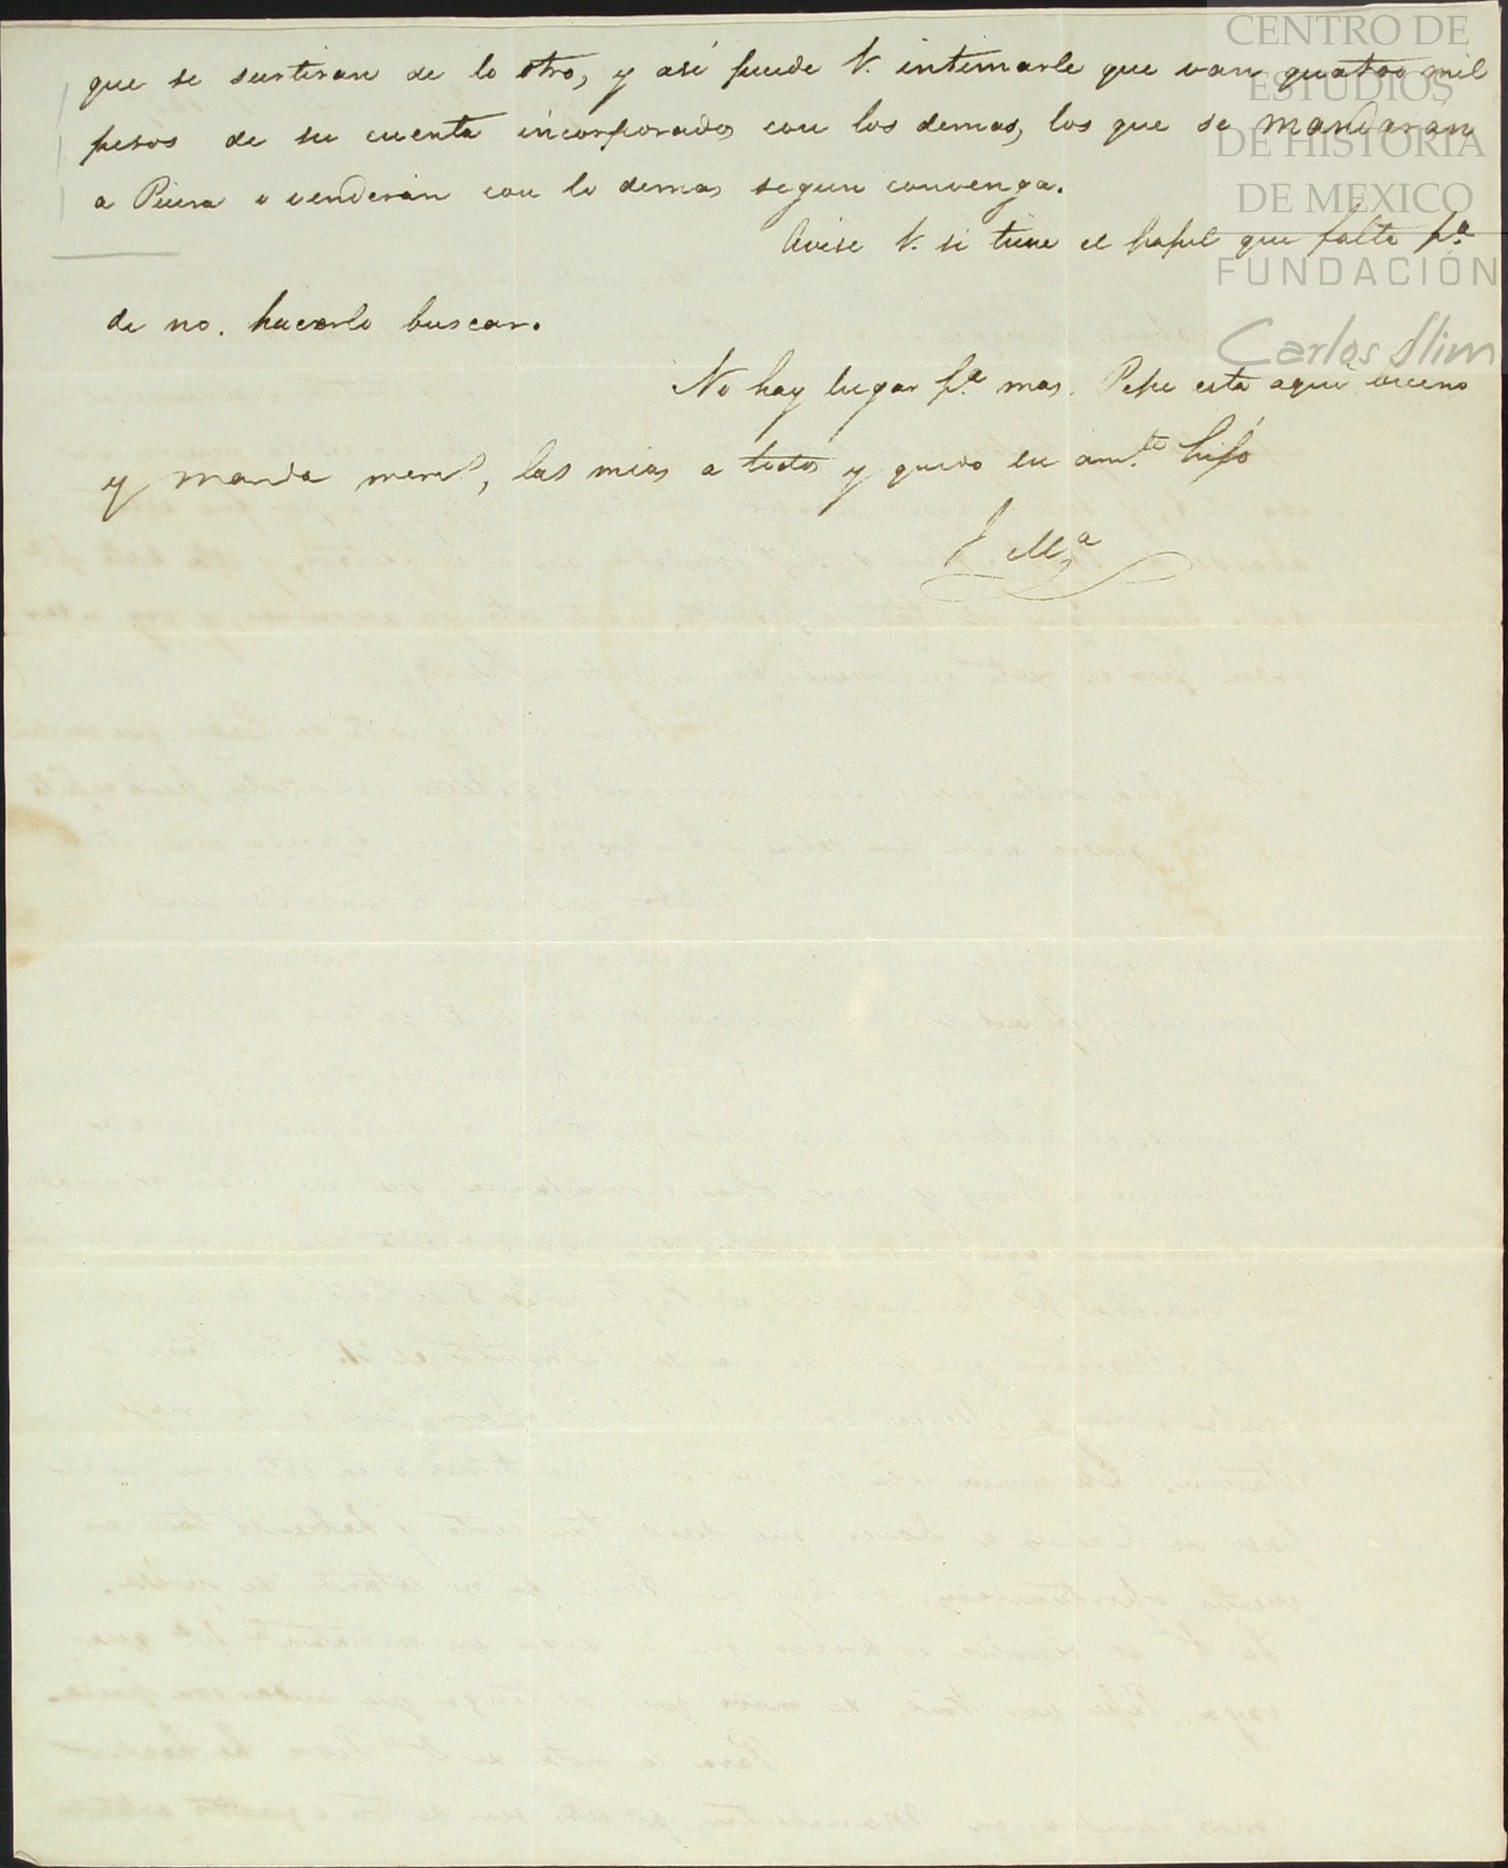 que se surtiran de lo otro, y asi puede V. intimarle que van quatro mil
pesos de su cuenta incorporados con los demas, los que se mandaran
a Piura o venderán con lo demas segun convenga.
Avise V. si tiene el papel que falta p.a
de no. hacerlo buscar.
No hay lugar p.a mas. Pepe esta aqui bueno
y manda mem.s, las mias a todos y quedo su am.te hijo
J Ma
CENTRO DE
ESTUDIOS
DE HISTORIA
DE MEXICO
FUNDACIÓN
Carlos Slim